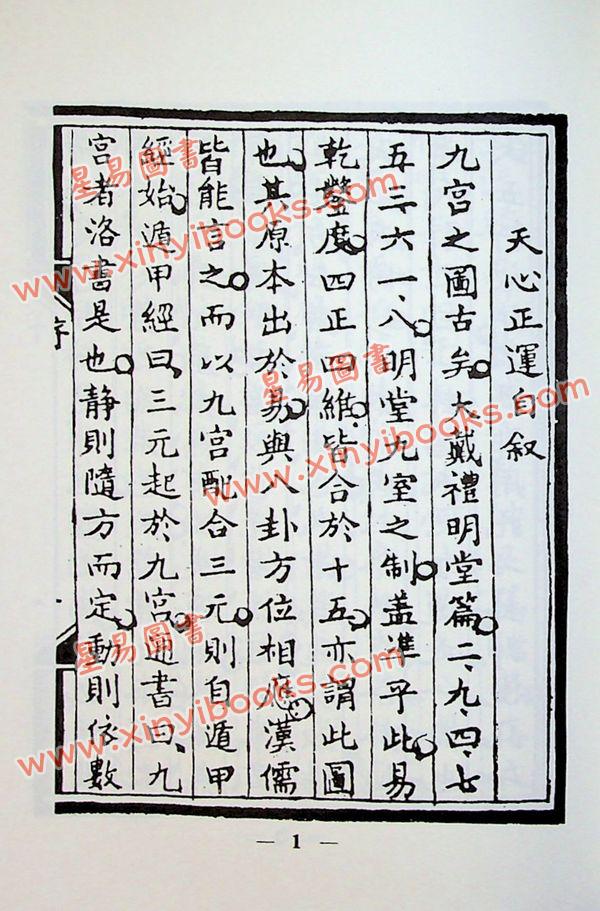 天心正運自叙
九宫之圖古矣。大戴禮明堂篇。二、九、四、七
五三六一、八。明堂九室之制。盖準乎此。易
乾鑿度。四正四維。皆合於十五。亦謂此圖
也。其原本出於易。與八卦方位相應。漢儒
皆能言之。而以九宫配合三元。則自遁甲
經始。遁甲經曰、三元起於九宫。通書曰、九
宫者洛書是也。静則隨方而定。動則依數
序
— 1 —
星易圖書
www.xinyibooks.com
星易圖書
www.xinyibooks.com
星易圖書
www.xinyibooks.com